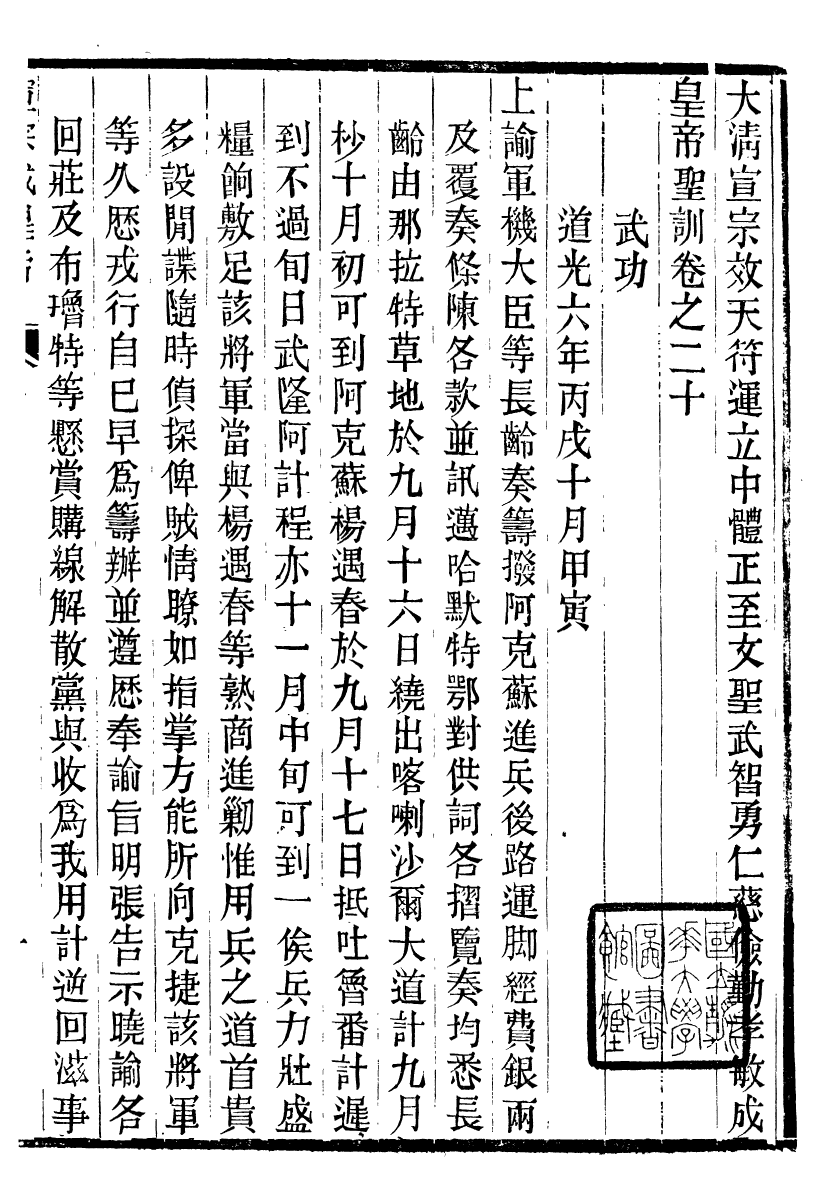 大清宣宗效天符運立中體正至文聖武智勇仁慈儉勤孝敏成
皇帝聖訓卷之二十
武功
道光六年丙戌十月甲寅
上諭軍機大臣等長齡奏籌撥阿克蘇進兵後路運脚經費銀兩
及覆奏條陳各款並訊邁哈默特鄂對供詞各摺覽奏均悉長
齡由那拉特草地於九月十六日繞出喀喇沙爾大道計九月
杪十月初可到阿克蘇楊遇春於九月十七日抵吐魯番計遲
到不過旬日武隆阿計程亦十一月中旬可到一俟兵力壯盛
糧餉敷足該將軍當與楊遇春等熟商進勦惟用兵之道首貴
多設閒諜隨時偵探俾賊情瞭如指掌方能所向克捷該將軍
等久歴戎行自已早爲籌辦並遵歴奉諭旨明張告示曉諭各
回莊及布嚕特等懸賞購線解散黨與收爲我用計逆回滋事
國立清華大學圖書館藏